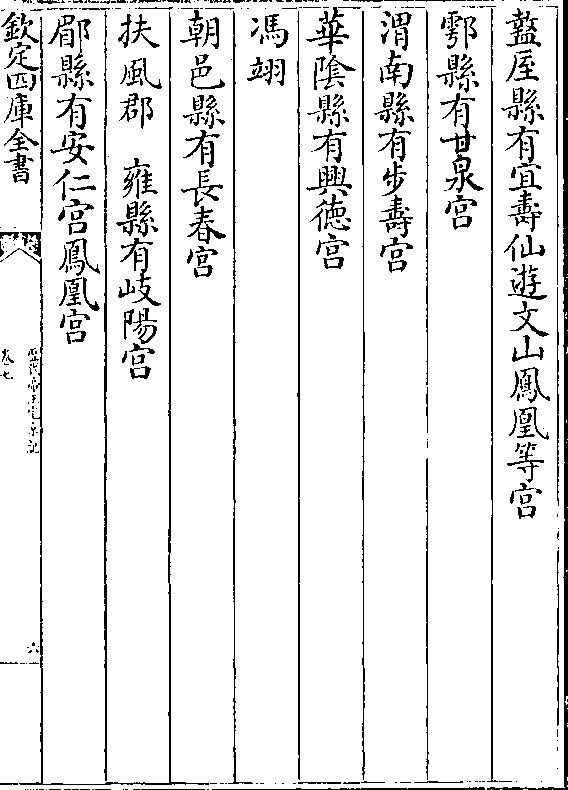 盩厔縣有宜壽仙遊文山鳳凰等宮
鄠縣有甘泉宮
渭南縣有步壽宮
華陰縣有興徳宮
馮翊
朝邑縣有長春宮
扶風郡　雍縣有岐陽宮
郿縣有安仁宮鳳凰宮
欽定四庫全書
卷七
六